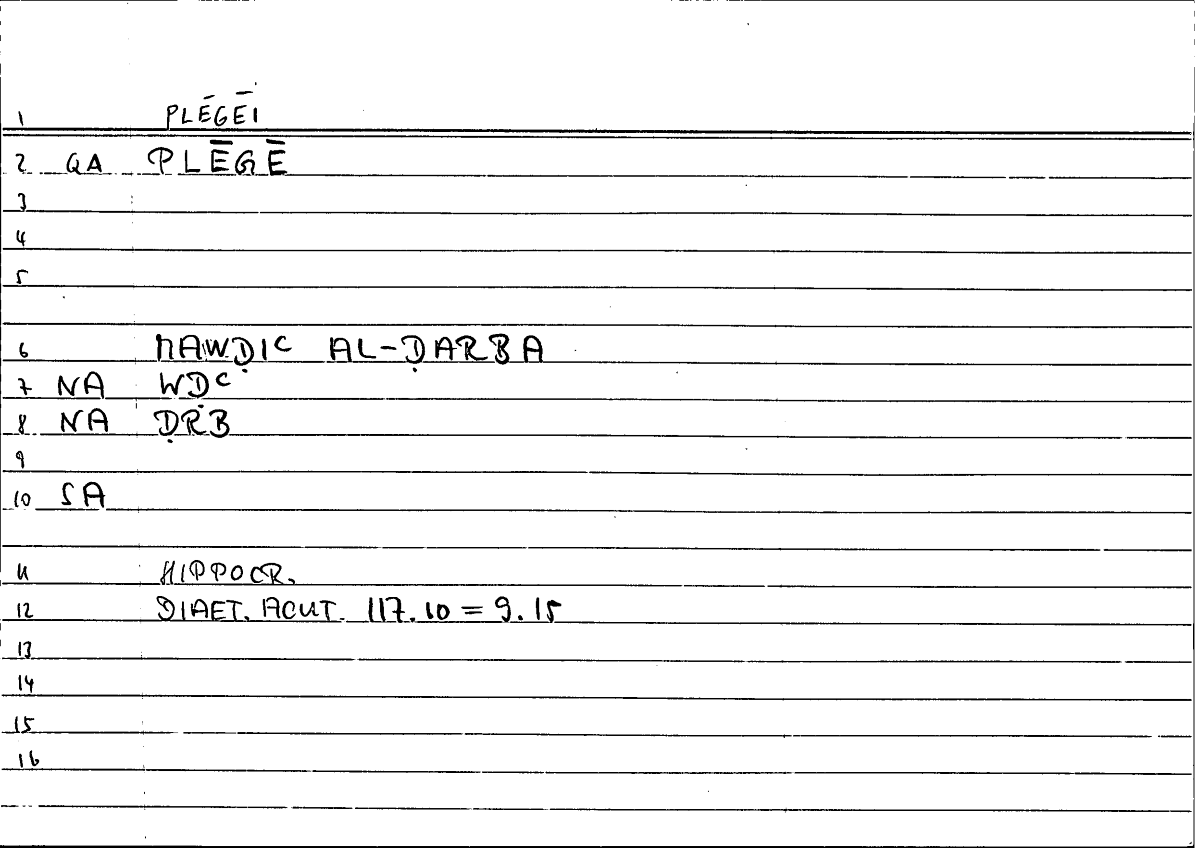 1 PLĒGĒI
2 QA PLĒGĒ
3
4
5
6 MAWḌIC AL-ḌARBA
7 NA WḌC
8 NA ḌRB
9
10 SA
11 HIPPOCR.
12 DIAET. ACUT. 117.10 = 9.15
13
14
15
16